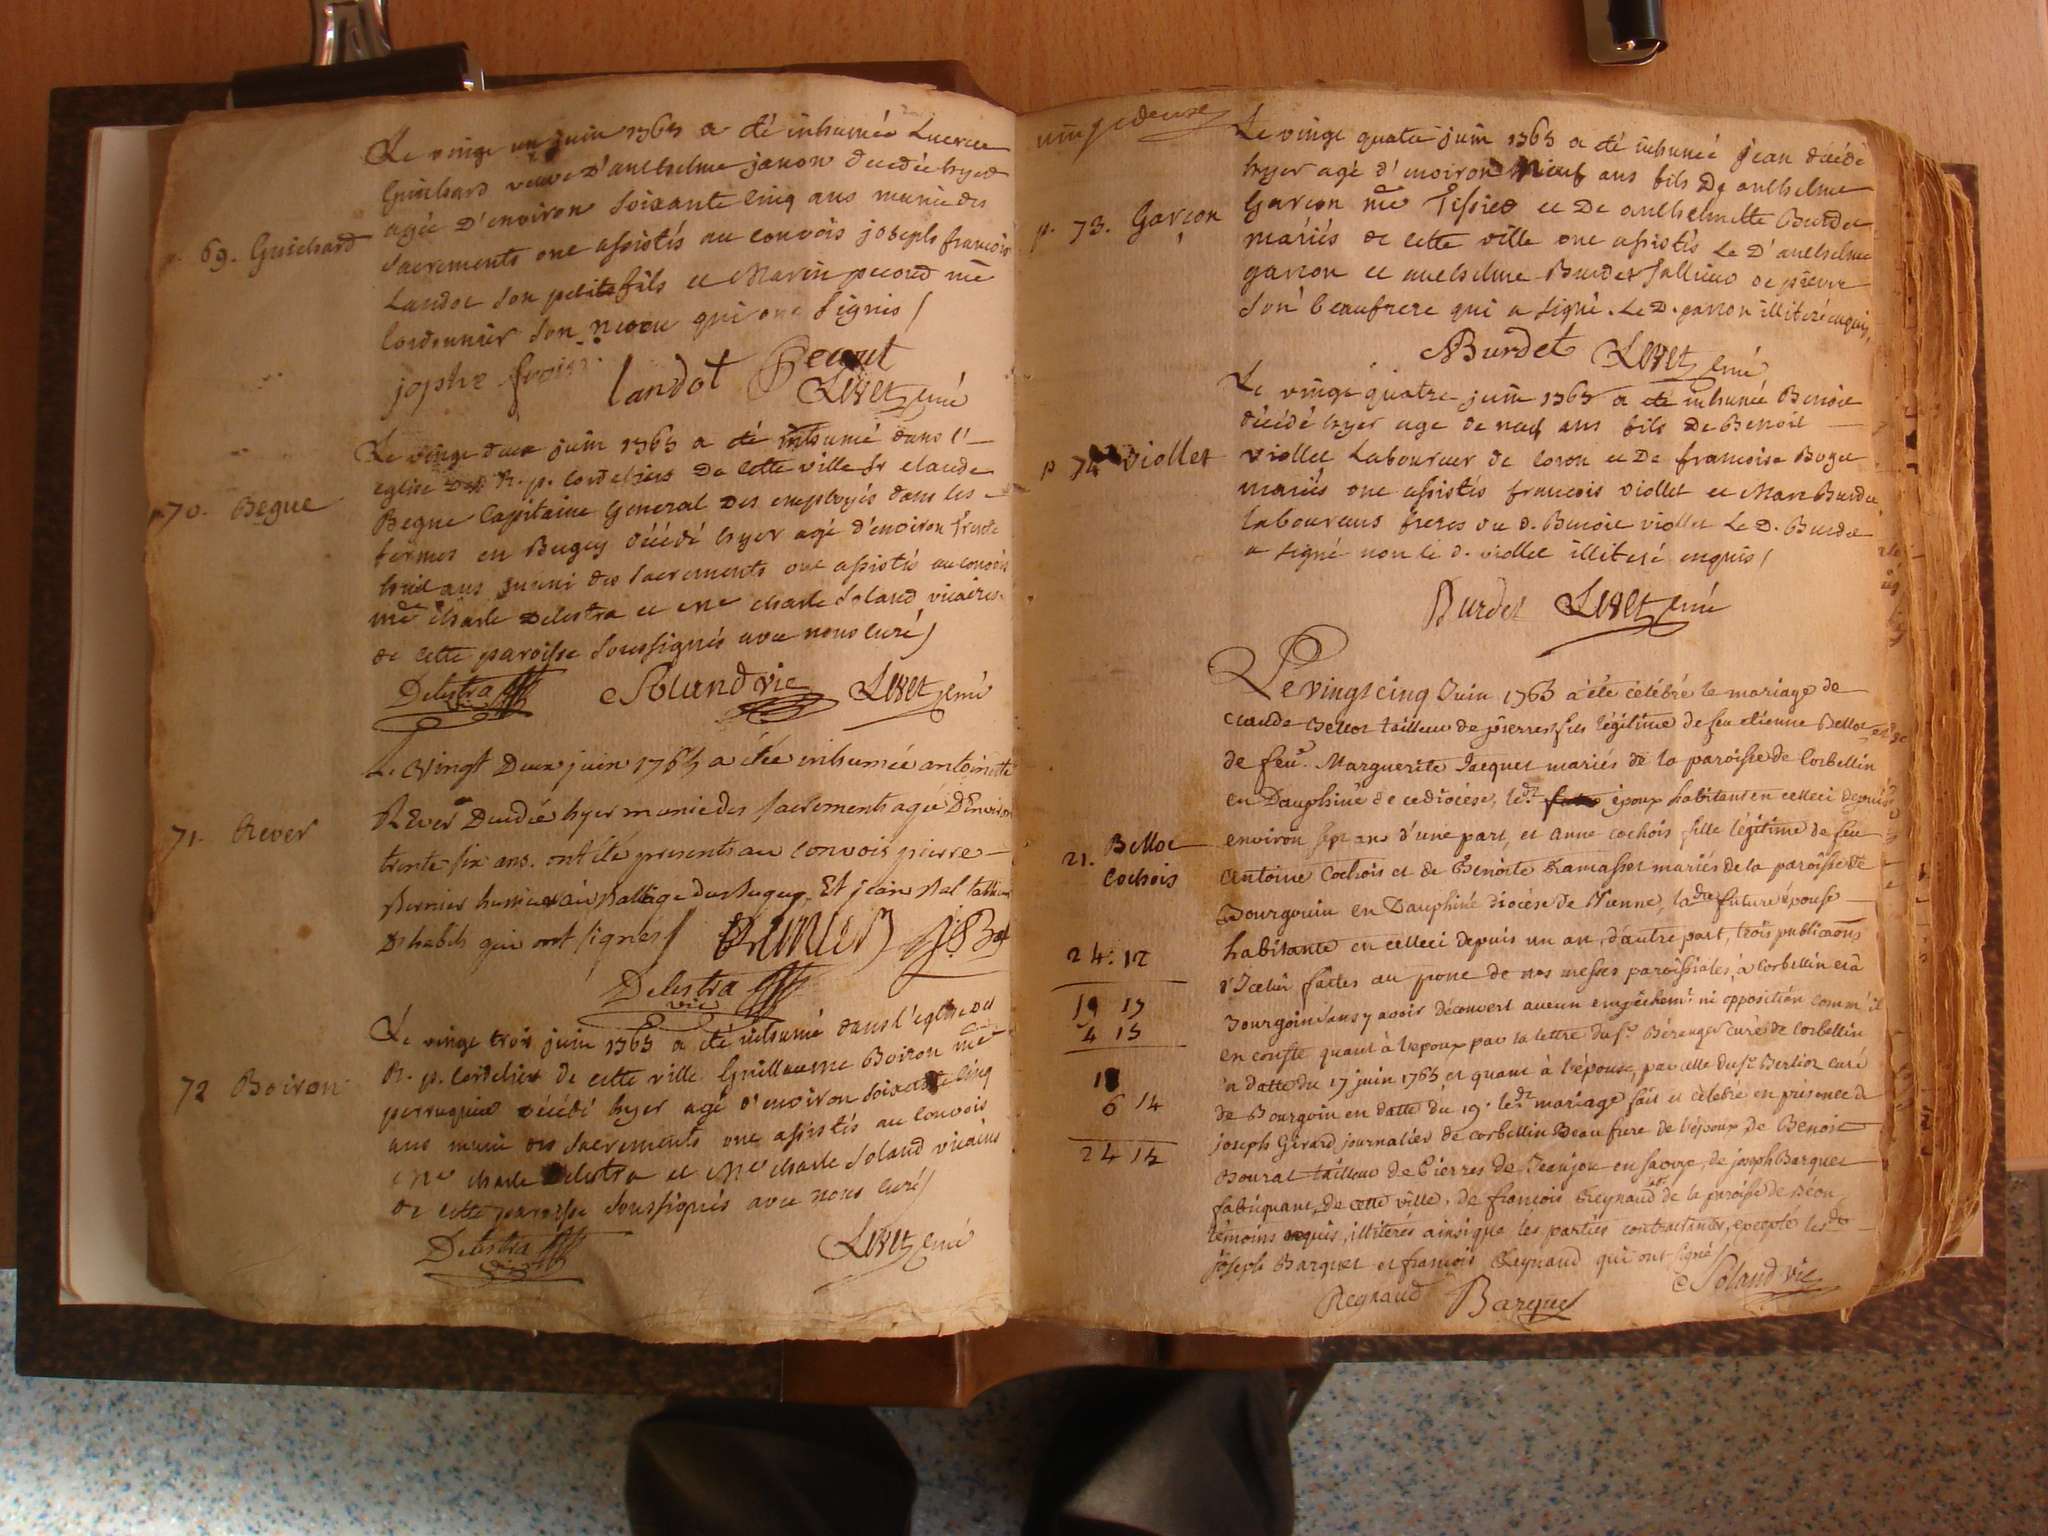 Le vingt un juin 1765 a été inhumée Lucrece
Guichard veuve D'anthelme janon decedée hyer
agée D'environ soixante cinq ans munie des
69. Guichard
sacrements ont assistés au convois joseph françois
Landot son petit fils et Marin pecoud me
Cordonnier son neveu qui ont signés /
josphe frois landot Pecout
Levet curé
Le vingt deux juin 1765 a été inhumé dans l'
eglise Des R. p. Cordeliers De cette ville Sr claude
p. 70. Begue
Begue Capitaine General Des employés dans les
fermes en Bugey décédé hyer agé d'environ trente
huit ans muni des sacrements ont assistés au convois
me charle Delestra et me charle Soland vicaires
de cette paroisse soussignés avec nous curé /
Delestra vic Soland vic Levet curé
Le Vingt Deux juin 1765 a été inhumée antoinette
Rever Decedée hyer munie des sacrements agée D'Environ
71. Rever
trente six ans. ont été presents au convois pierre
Bernier huissier au Balliage Du Bugey, Et jean Bal tailleur
D'habits qui ont signés / Bernier J. Bal
Delestra vic
Le vingt trois juin 1765 a été inhumé dans l'eglise Des
R. p. Cordeliers de cette ville Guillaume Boiron me
72 Boiron
perruquier décédé hyer agé d'environ soixante cinq
ans muni des sacrements ont assistés au convois
Me charle Delestra et Me charle Soland vicaires
de cette paroisse soussignés avec nous curé /
Delestra vic Levet curé
vingt deuxe
Le vingt quatre juin 1765 a été inhumé jean décédé
hyer agé d'environ Neuf ans fils De anthelme
p. 73. Garçon
Garçon me Tessier et De anthelmette Burdet
mariés de cette ville ont assistés Le D. anthelme
garçon et anthelme Burdet tallieur de pierre
son beaufrere qui a signé. Le D. garçon illiteré enquis /
Burdet Levet curé
Le vingt quatre juin 1765 a été inhumé Benoit
décédé hyer age de neuf ans fils De Benoit
p 74 Viollet
viollet Laboureur de coron et De francoise Buget
mariés ont assistés francois viollet et Marc Burdet
laboureurs freres du d. Benoit viollet Le D. Burdet
a signé non le d. viollet illiteré enquis /
Burdet Levet curé
Le vingt cinq Juin 1765 a été célébré le mariage de
claude Belloz tailleur de pierres fils légitime de feu etienne Belloz et de
de feue Marguerite Jacquet mariés de la paroisse de Corbellin
en Dauphiné de ce diocèse, ledt époux habitant en celleci depuis
environ sept ans d'une part, et anne cochois fille légitime de feu
21. Belloz
Cochois
antoine Cochois et de Benoite Ramasset mariés de la paroisse de
Bourgouin en Dauphiné diocèse de Vienne, ladte future épouse
habitante en celleci depuis un an, d'autre part, trois publicaons
24:12
d'Icelui faites au prone de nos messes paroissiales, a Corbellin et à
19 17
Bourgoin sans y avoir découvert aucun empêchemt ni opposition comm'il
4 15
en conste quant à l'epoux par la lettre du Sr Béranger curé de Corbellin
en datte du 17 juin 1765 et quant à l'épouse, par celle du Sr Berlioz curé
18
6 14
de Bourgoin en datte du 19. ledt mariage fait et célébré en présence de
joseph Girard journalier de corbellin Beau frere de l'époux, de Benoit
24 12
Bourat tailleur de Pierres de Beaujou en savoye, de joseph Barquet
fabriquant de cette ville, de françois Reynaud de la paroisse de Béon,
témoins requis, illiterés ainsi que les parties contractantes, excepté lesdts
joseph Barquet et françois Reynaud qui ont signé /
Regnaud Barquet Soland vic